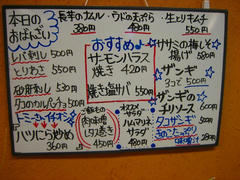 本日の
おばんざい
長芋のナムル・ウドの天ぷら・生とりキムチ
380 480 550
レバ刺し 550円
とりわさ 550円
砂肝刺し 530円
タコのカルパッチョ 580円
ハツにら炒め
360円
おすすめ♪
サーモンハラス
焼き 420円
焼き塩サバ 580円
ご飯もの
肉味噌
レタス巻き
450円
サラダ
480円
ササミの梅しそ
揚げ 580円
ザンギ
3コで 500円
ザンギの
チリソース 600円
タコザンギ
500円
280円